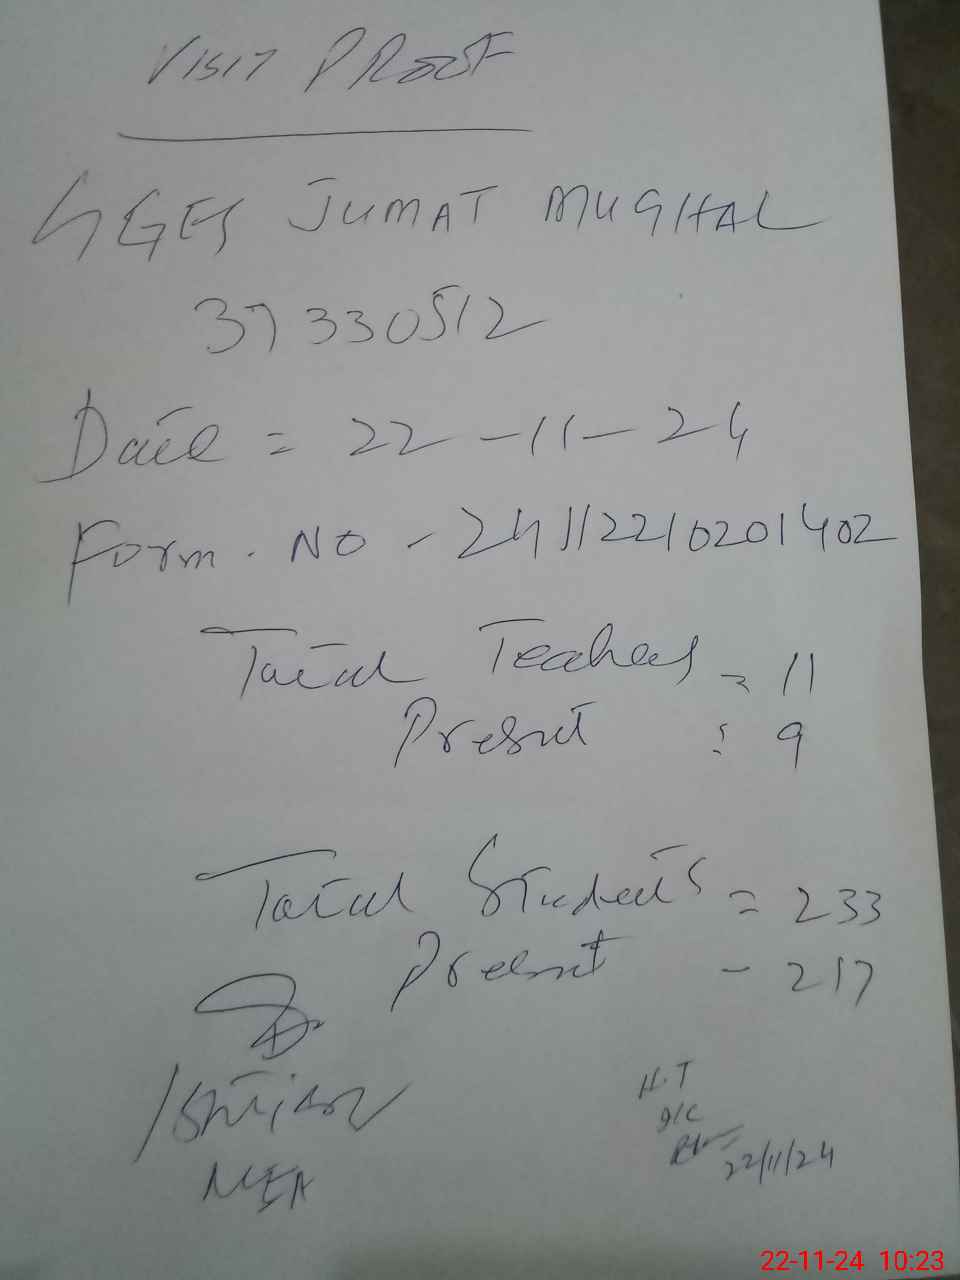 VISIT PROOF
GGES JUMAT MUGHAL
37330512
Date = 22-11-24
Form. NO - 24112210201402
Total Teachers = 11
Present : 9
Total Students = 233
Present - 217
Ishtiaq
MEA
H.T
I/C
22/11/24
22-11-24 10:23